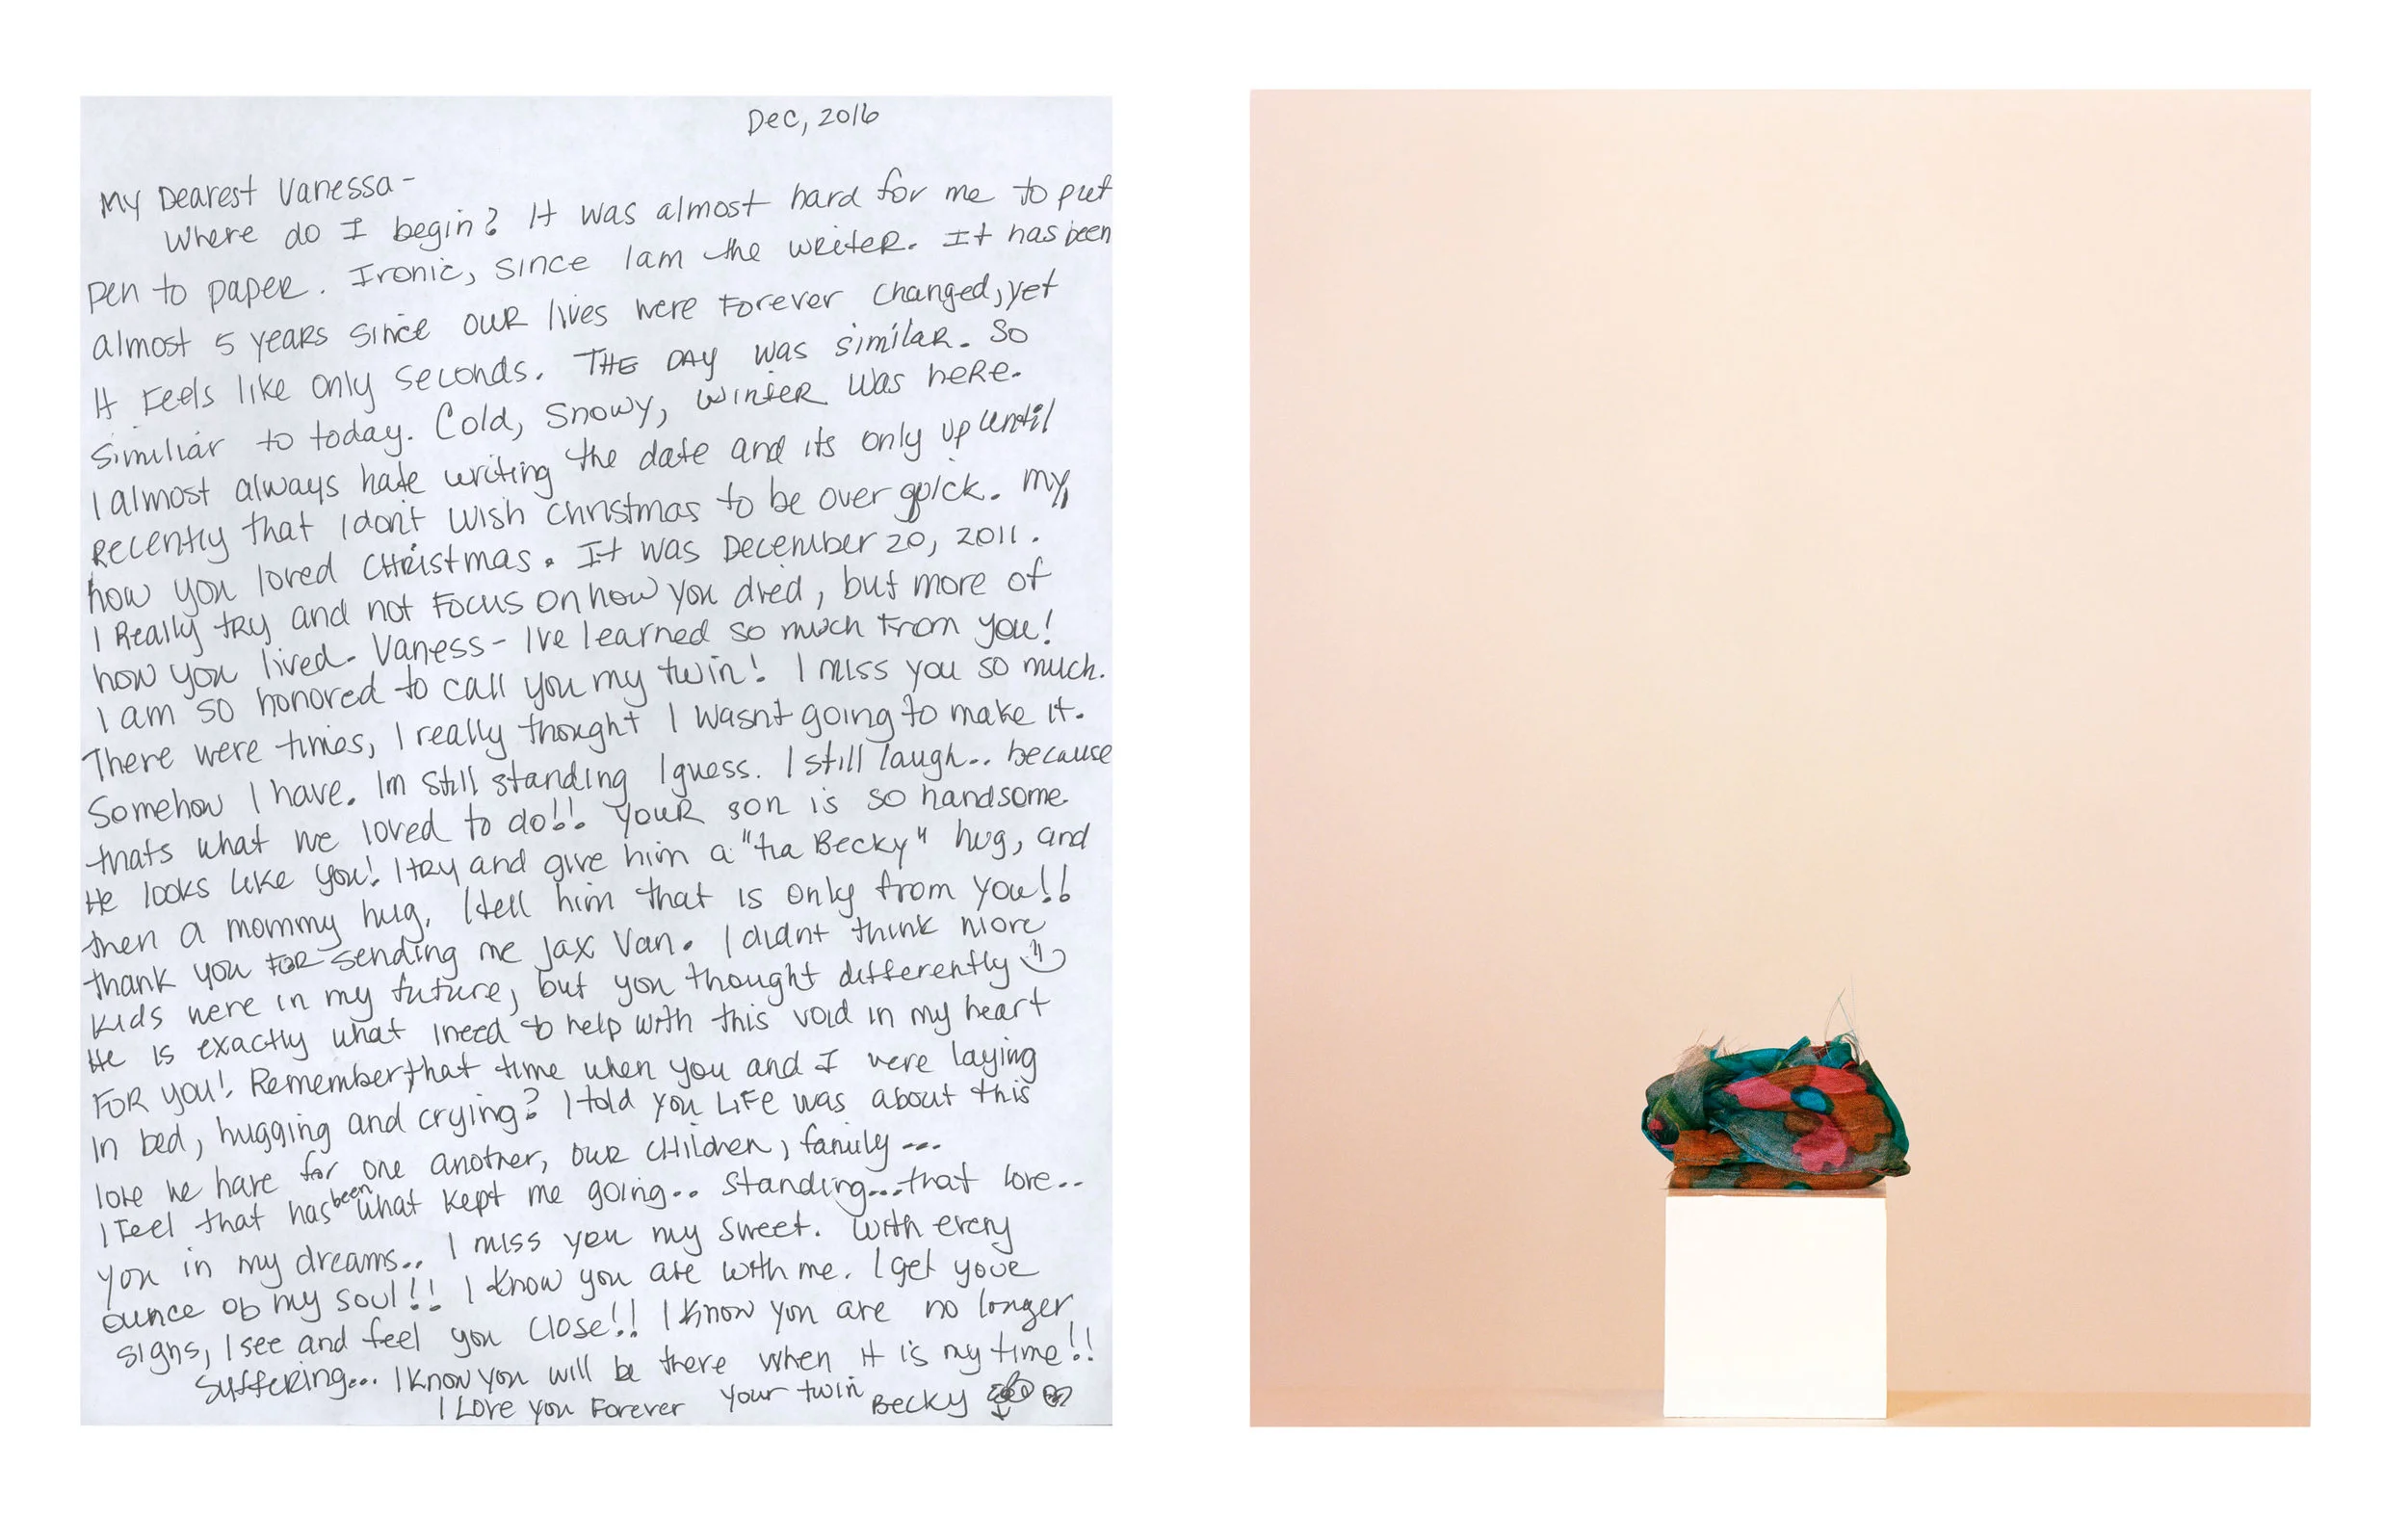 Dec, 2016
My Dearest Vanessa-
Where do I begin? It was almost hard for me to put
pen to paper. Ironic, since I am the writer. It has been
almost 5 years since our lives were forever changed, yet
It feels like only seconds. THE DAY was similar. So
similiar to today. Cold, snowy, winter was here.
I almost always hate writing the date and its only up until
recently that I don't wish Christmas to be over quick. My,
how you loved Christmas. It was December 20, 2011.
I Really try and not focus on how you died, but more of
how you lived- Vaness- Ive learned so much from you!
I am so honored to call you my twin! I miss you so much.
There were times, I really thought I wasnt going to make it.
Somehow I have. Im still standing I guess. I still laugh.. because
thats what we loved to do!! Your son is so handsome
He looks like you! I try and give him a "tia Becky" hug, and
then a mommy hug. I tell him that is only from you!!
thank you for sending me Jax Van. I didnt think more
kids were in my future, but you thought differently
He is exactly what I need to help with this void in my heart
For you! Remember, that time when you and I were laying
in bed, hugging and crying? I told you Life was about this
love we have for one another, our children, family...
I feel that has been what kept me going.. standing...that love..
you in my dreams.. I miss you my sweet. With every
ounce of my soul!! I know you are with me. I get your
signs, I see and feel you close!! I know you are no longer
suffering... I know you will be there when it is my time!!
I Love you Forever your twin Becky